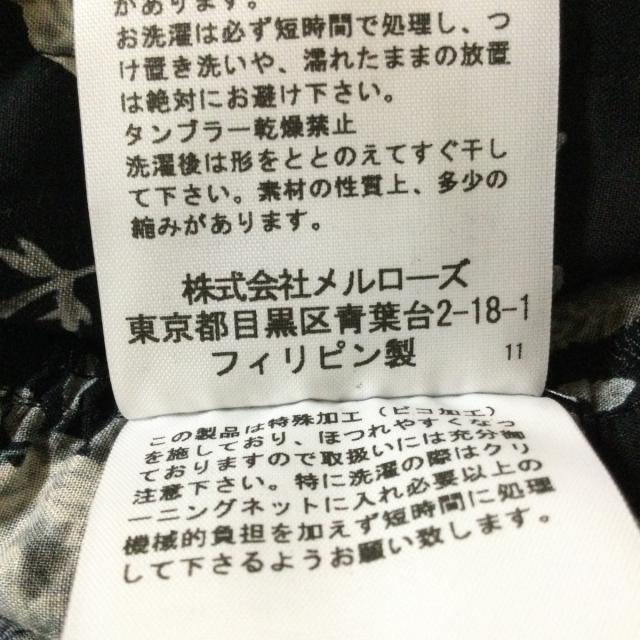 があります。
お洗濯は必ず短時間で処理し、つ
け置き洗いや、濡れたままの放置
は絶対にお避け下さい。
タンブラー乾燥禁止
洗濯後は形をととのえてすぐ干し
て下さい。素材の性質上、多少の
縮みがあります。
株式会社メルローズ
東京都目黒区青葉台2-18-1
フィリピン製
11
この製品は特殊加工(ピコ加工)
を施しており、ほつれやすくなっ
ておりますので取扱いには充分御
注意下さい。特に洗濯の際はクリ
ーニングネットに入れ必要以上の
機械的負担を加えず短時間に処理
して下さるようお願い致します。